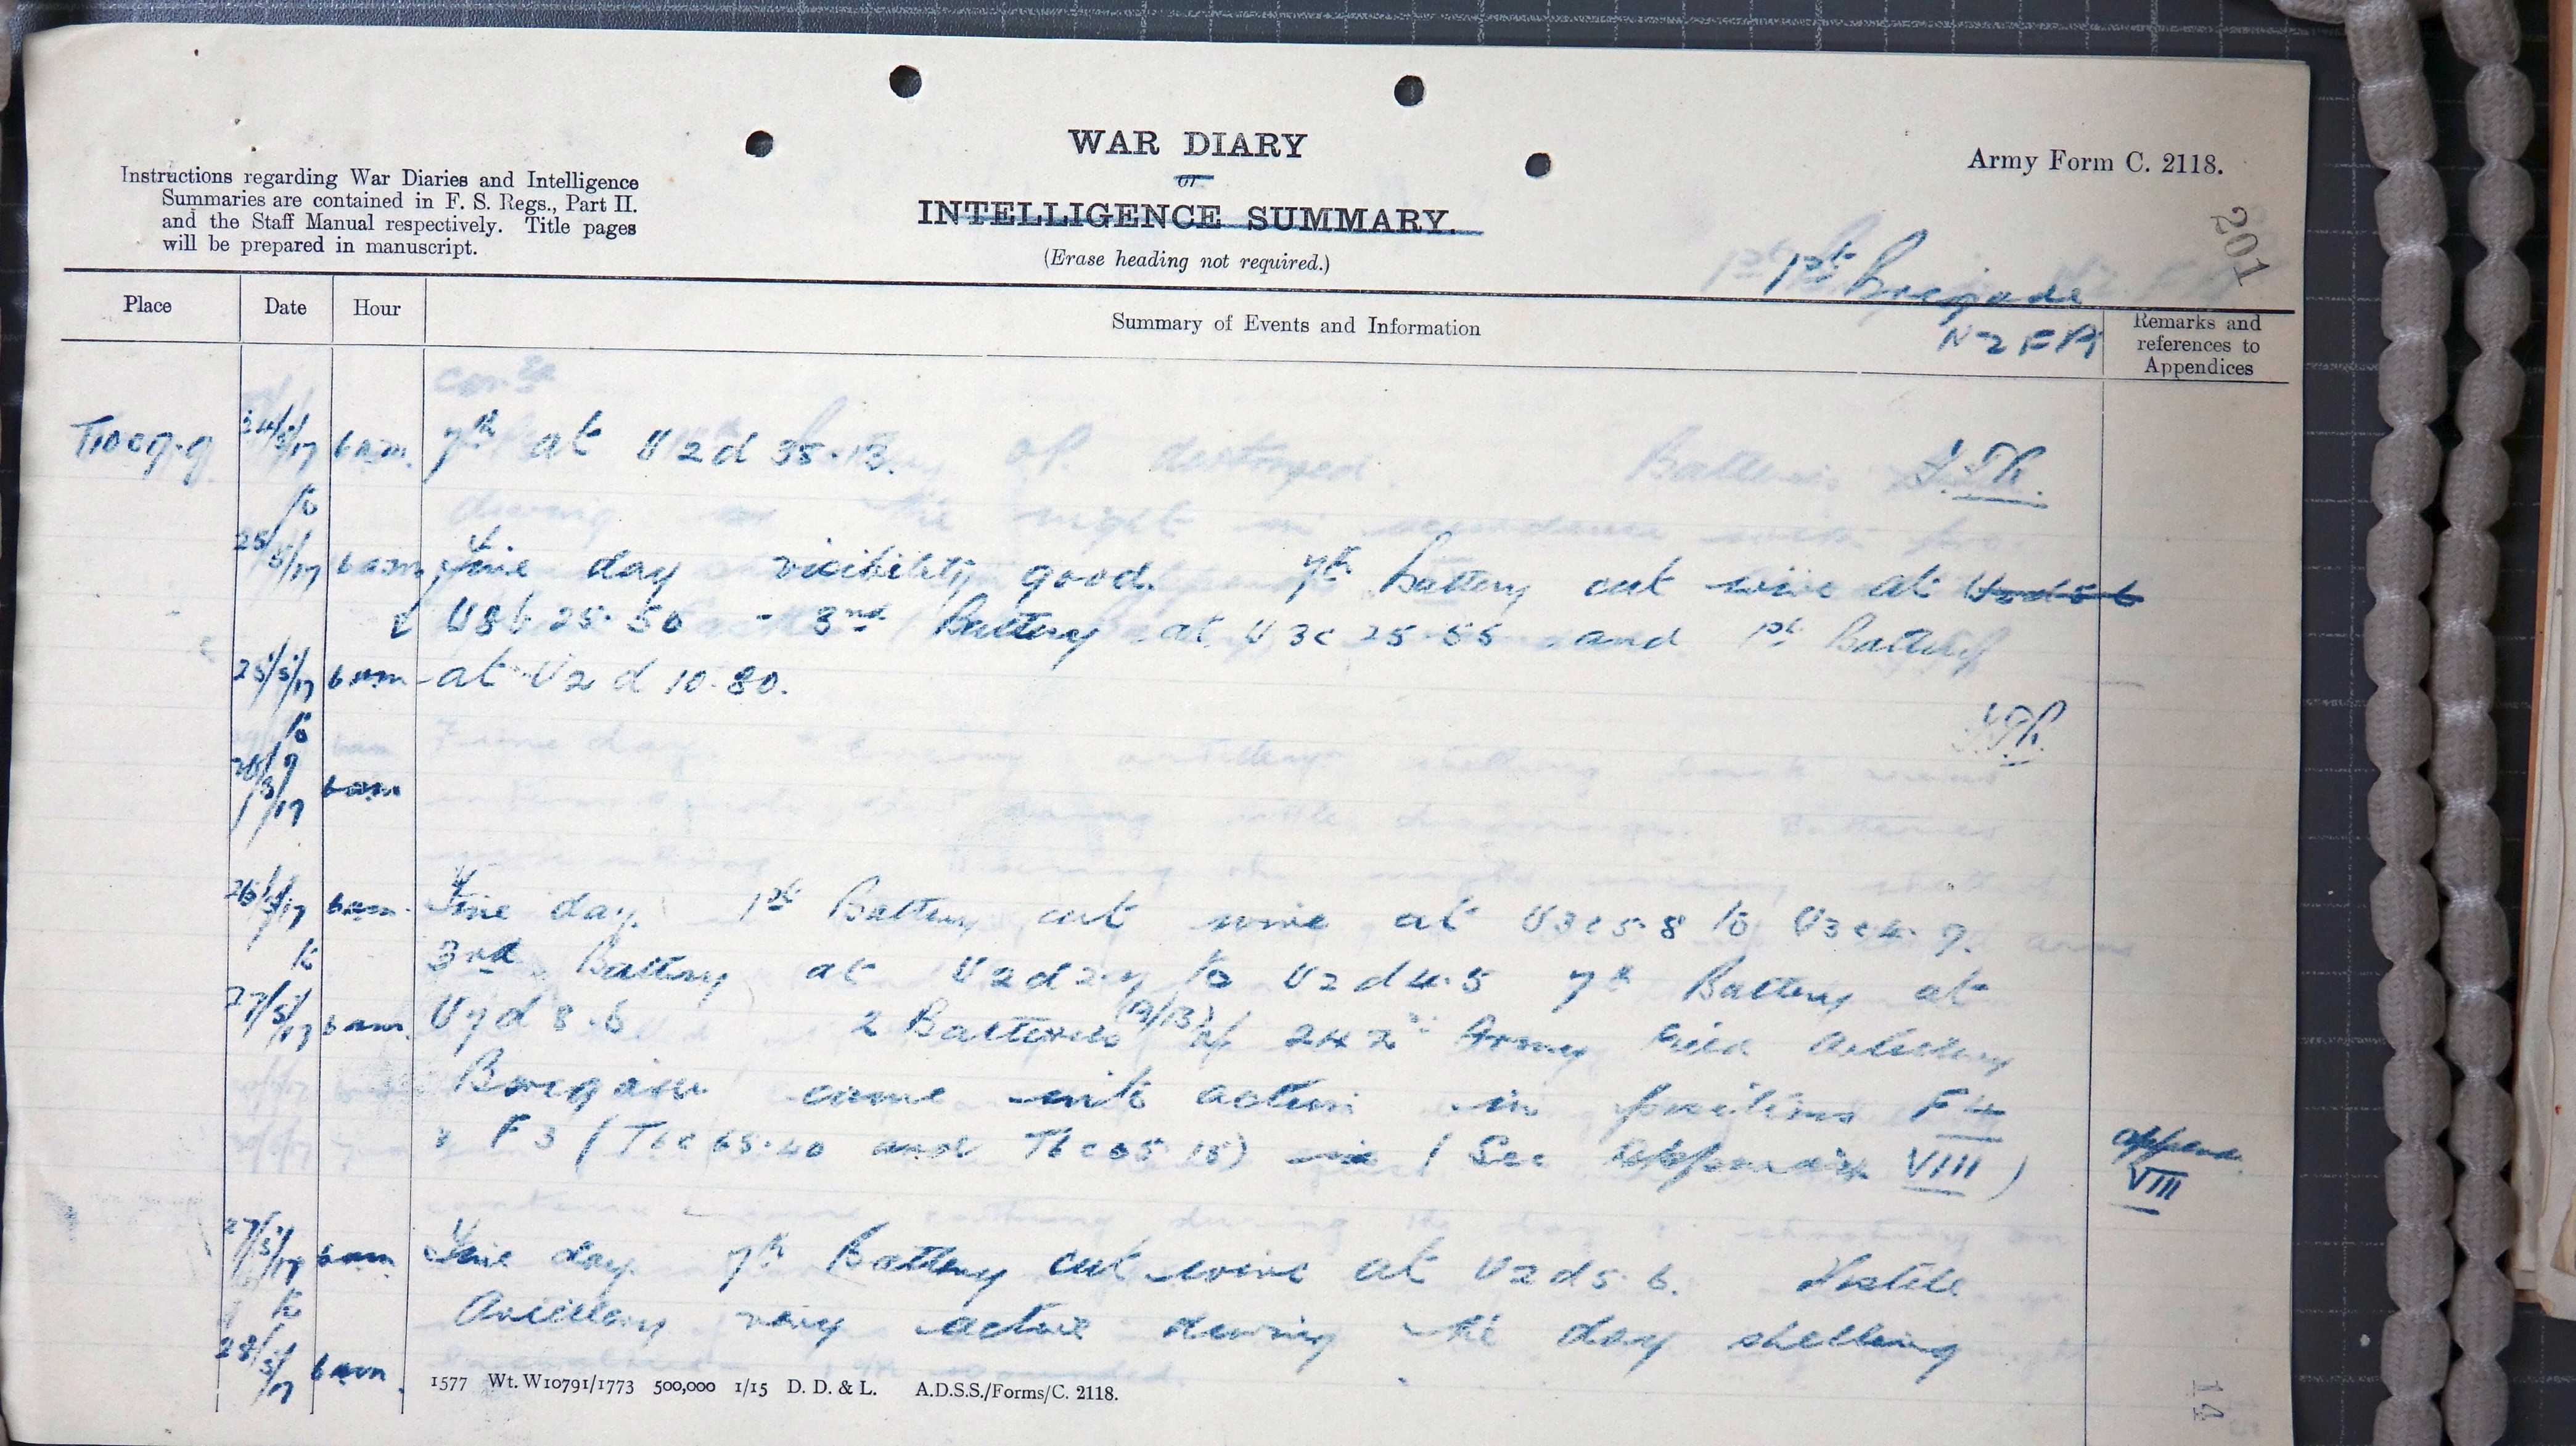 WAR DIARY
or
INTELLIGENCE SUMMARY.
(Erase heading not required.)
Army Form C. 2118.
Instructions regarding War Diaries and Intelligence
Summaries are contained in F. S. Regs., Part II.
and the Staff Manual respectively. Title pages
will be prepared in manuscript.
201
1st Brigade
NZFA
Place Date Hour Summary of Events and Information Remarks and references to Appendices
24/5/17 6 am. 7th at U2d 35.13.
to
25/5/17 6 am Fine day visibility good. 7th Battery cut wire at U2d56
U8b 25.50 - 3rd Battery at U3c 25.55 and 1st Battery
25/5/17 6 am at U2d 10.80.
to
6 am
26/5/17 6 am. Fine day. 1st Battery cut wire at U3c5.8 to U3c4.9.
to 3rd Battery at to U2d4.5 7th Battery at
27/5/17 6 am. U7d8.6 2 Batteries of Army Field Artillery
Brigade came into action in positions F4
& F3 (T6c65.40 and T6c05.15) (See Appendix VIII)
Append. VIII
27/5/17 6 am Fine day. 7th Battery cut wire at U2d5.6. Hostile
to Artillery very active during the day shelling
28/5/17 6 am.
1577 Wt. W10791/1773 500,000 1/15 D. D. & L. A.D.S.S./Forms/C. 2118.
14